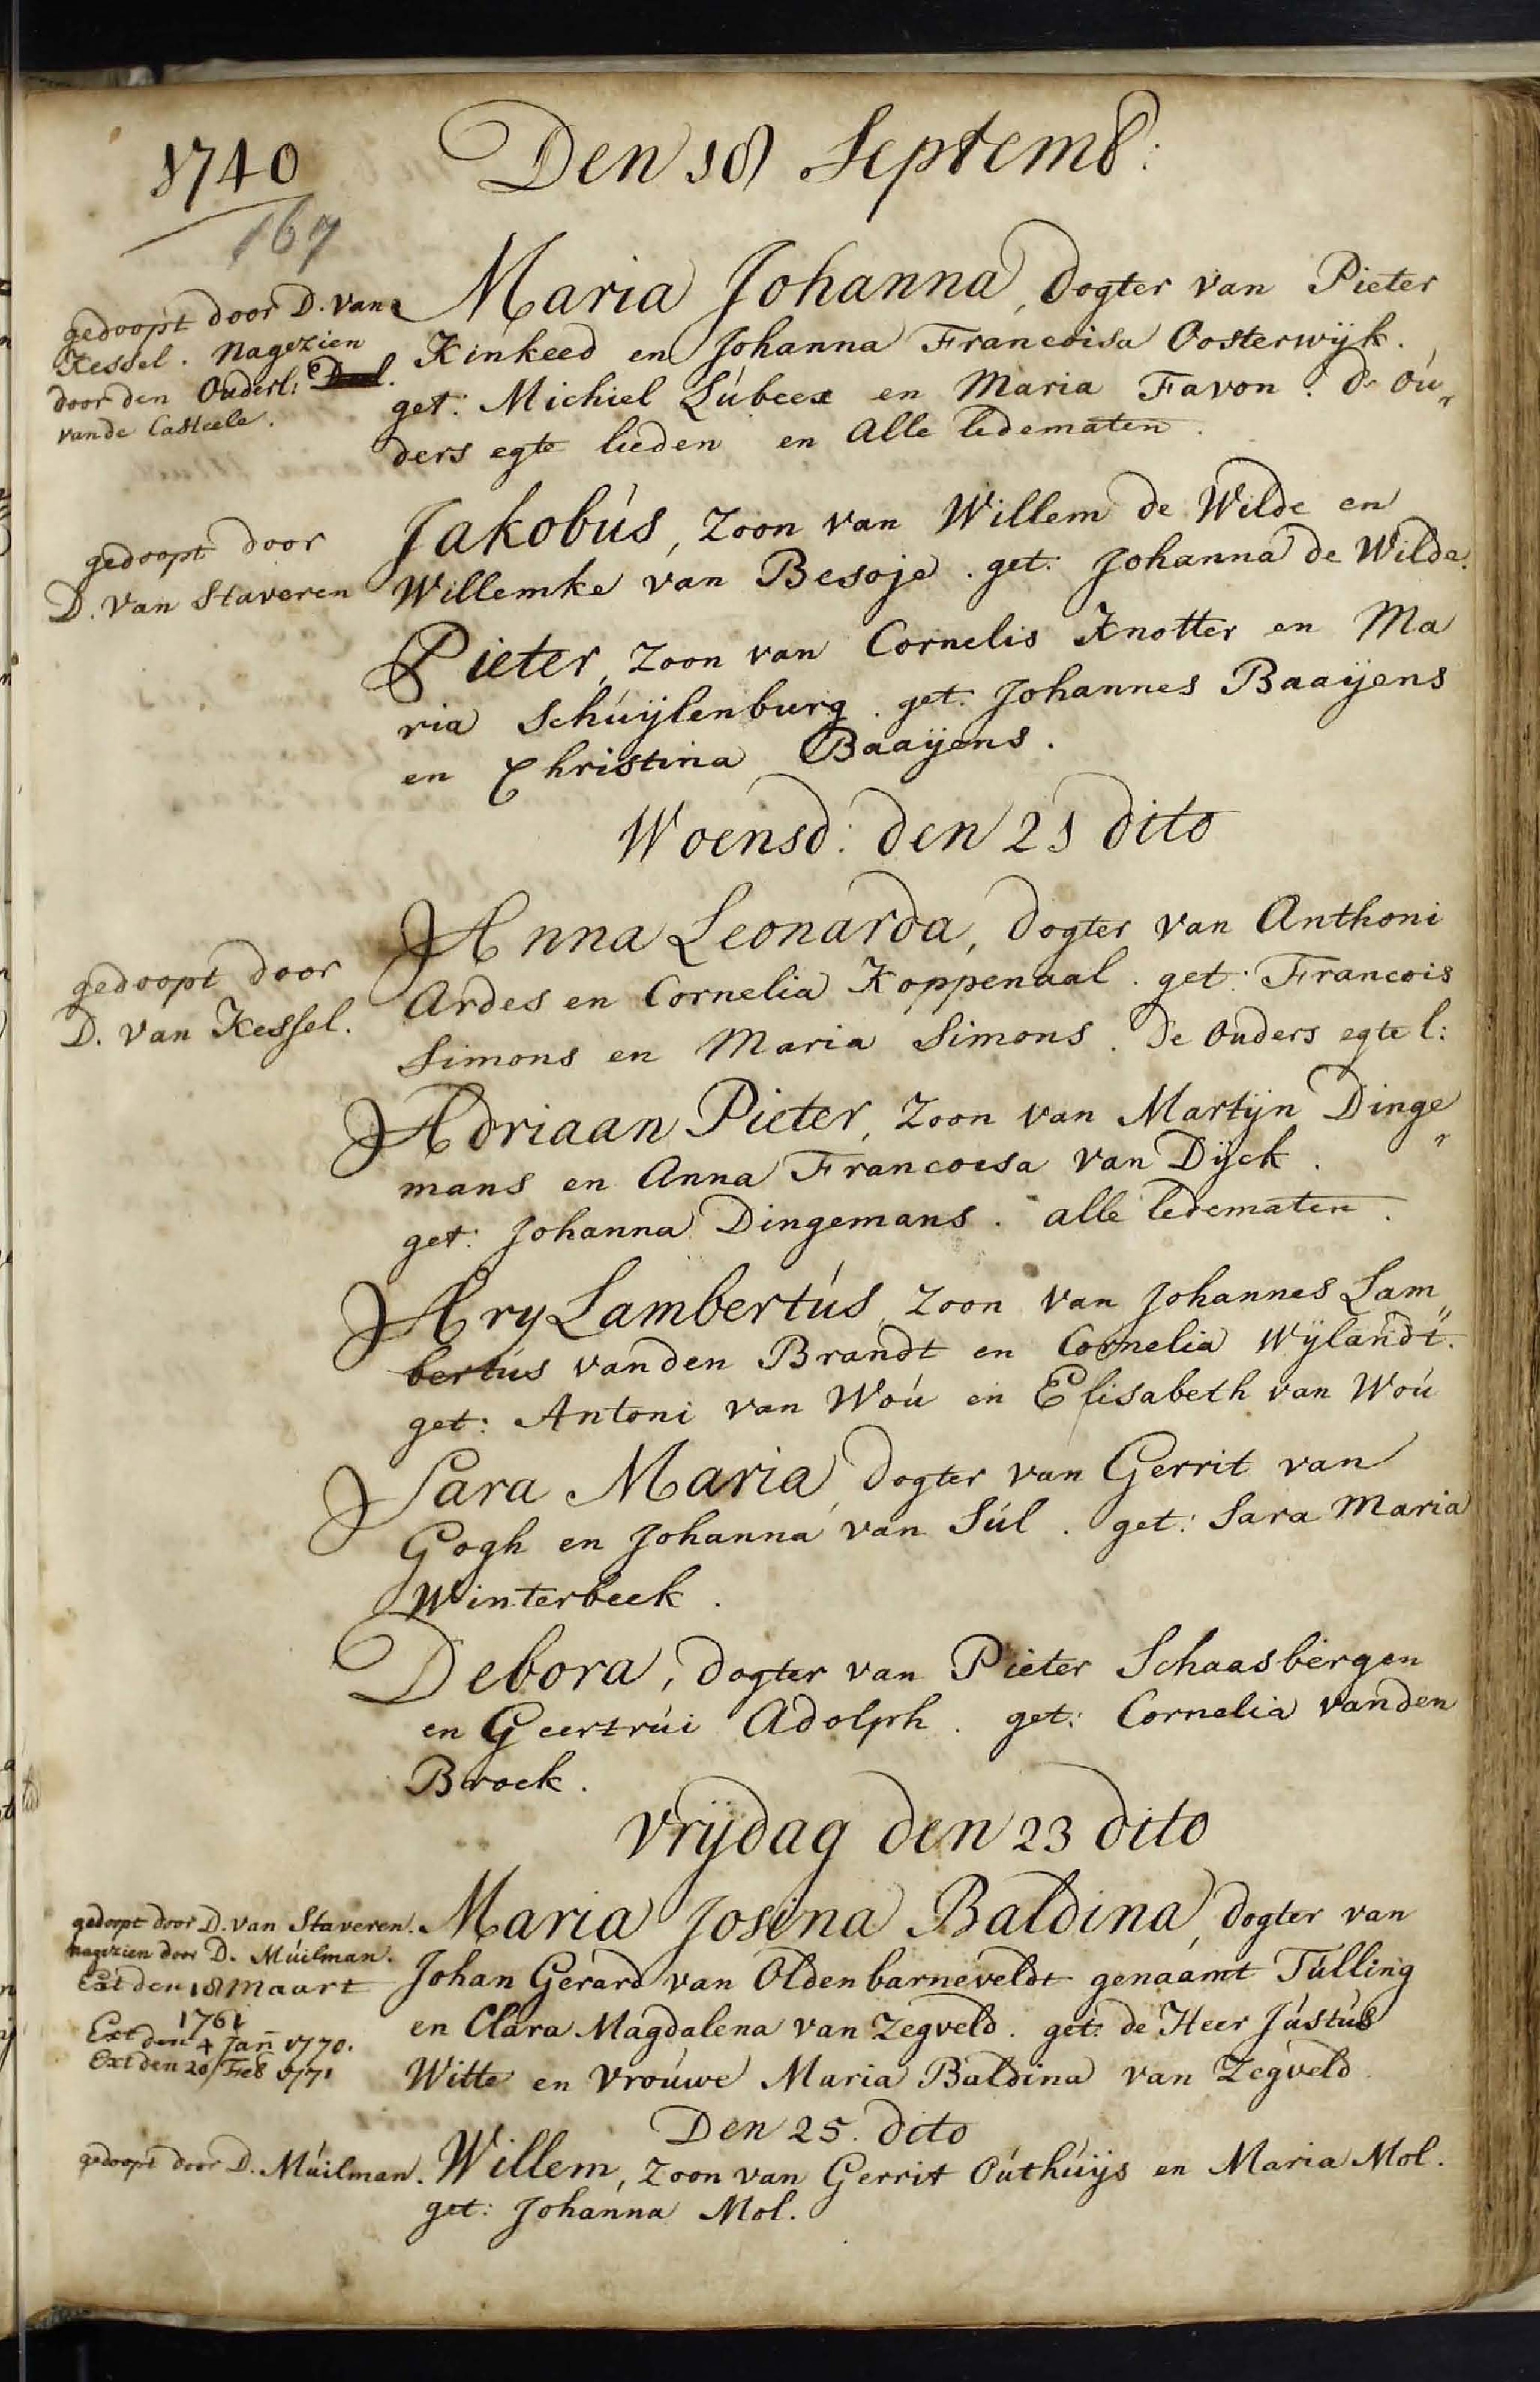 1740
Den 18 Septemb:
167
gedoopt door D. van
Kessel. Nagezien
door den Ouderl:
van de Casteele.
Maria Johanna, dogter van Pieter
Kinkeed en Johanna Francoisa Oosterwijk.
get: Michiel Lúbeex en Maria Favon. de oú„
ders egte lieden en alle ledematen.
gedoopt door
D. van Staveren
Jakobús, zoon van Willem de Wilde en
Willemke van Besoje. get. Johanna de Wilde.
Pieter, zoon van Cornelis Knotter en Ma
ria Schúijlenburg. get. Johannes Baaijens
en Christina Baaijens.
Woensd: den 21 dito
gedoopt door
D. van Kessel.
Anna Leonarda, dogter van Anthoni
Ardes en Cornelia Koppenaal. get: Francois
Simons en Maria Simons. De ouders egte l:
Adriaan Pieter, zoon van Martijn Dinge„
mans en Anna Francoesa van Dijck.
get: Johanna Dingemans. alle ledematen.
Ary Lambertús, zoon van Johannes Lam„
bertús vanden Brandt en Cornelia Wijlandt.
get: Antoni van Woú en Elisabeth van Woú
Sara Maria, dogter van Gerrit van
Gogh en Johanna van Súl. get: Sara Maria
Winterbeek.
Debora, dogter van Pieter Schaasbergen
en Geertrúi Adolph. get: Cornelia vanden
Broek.
vrijdag den 23 dito
gedoopt door D. van Staveren.
nagezien door D. Múilman.
Ext den 18 Maart
1761
Ext den 4 Jan 1770.
Ext den 20 Feb 1771
Maria Josina Baldina, dogter van
Johan Gerard van Oldenbarneveldt genaamt Túlling
en Clara Magdalena van Zegveld. get: de Heer Jústús
Witte en vroúwe Maria Baldina van Zegveld
Den 25. dito
gedoopt door D. Múilman.
Willem, zoon van Gerrit Oúthúijs en Maria Mol.
get: Johanna Mol.